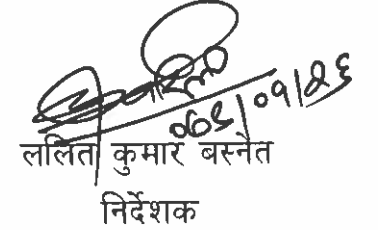 ०७९/०१/२६
ललित कुमार बस्नेत
निर्देशक